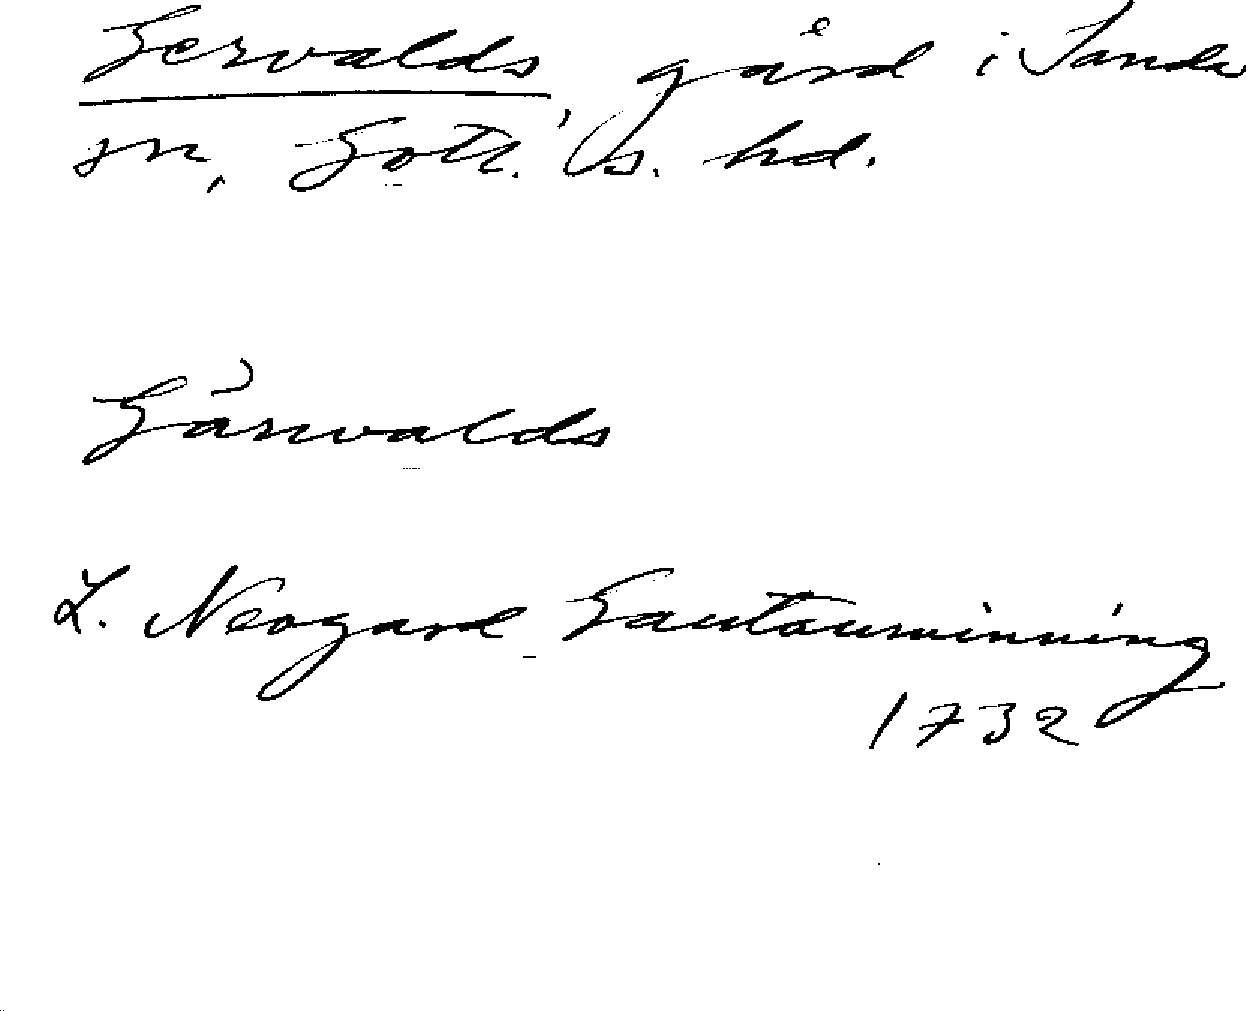 Gervalds, gård i Sanda
sn, Gotl. s. hd.
Gärvalds
L. Neogard Gautauminning
1732